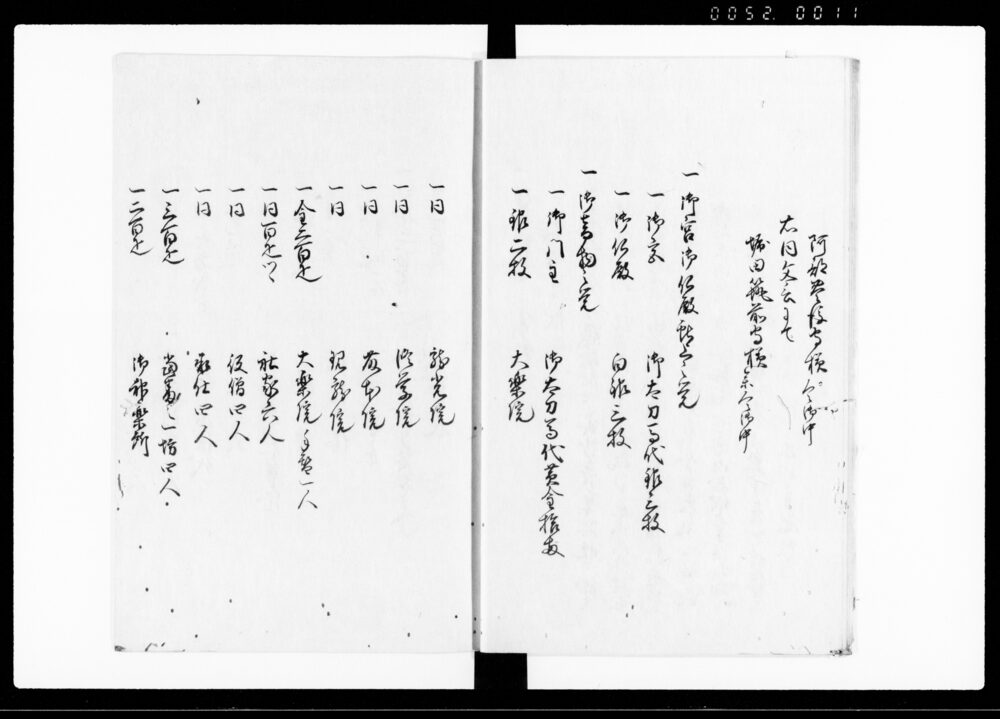 0052.0011
阿部豊後守様 人々御中
右同文言ニて
堀田筑前守様 参人々御中
一 御宮御仏殿献上之覚
一 御宮 御太刀馬代銀三枚
一 御仏殿 白銀三枚
一 御音物之覚
一 御門主 御太刀馬代黄金拾両
一 銀二枚 大楽院
一 同 龍光院
一 同 修学院
一 同 藤本院
一 同 観龍院
一 金二百疋 大楽院手替一人
一 同百疋ツヽ 社家六人
一 同 役僧四人
一 同 承仕四人
一 三百疋 当番之一坊四人
一 二百疋 御神楽所